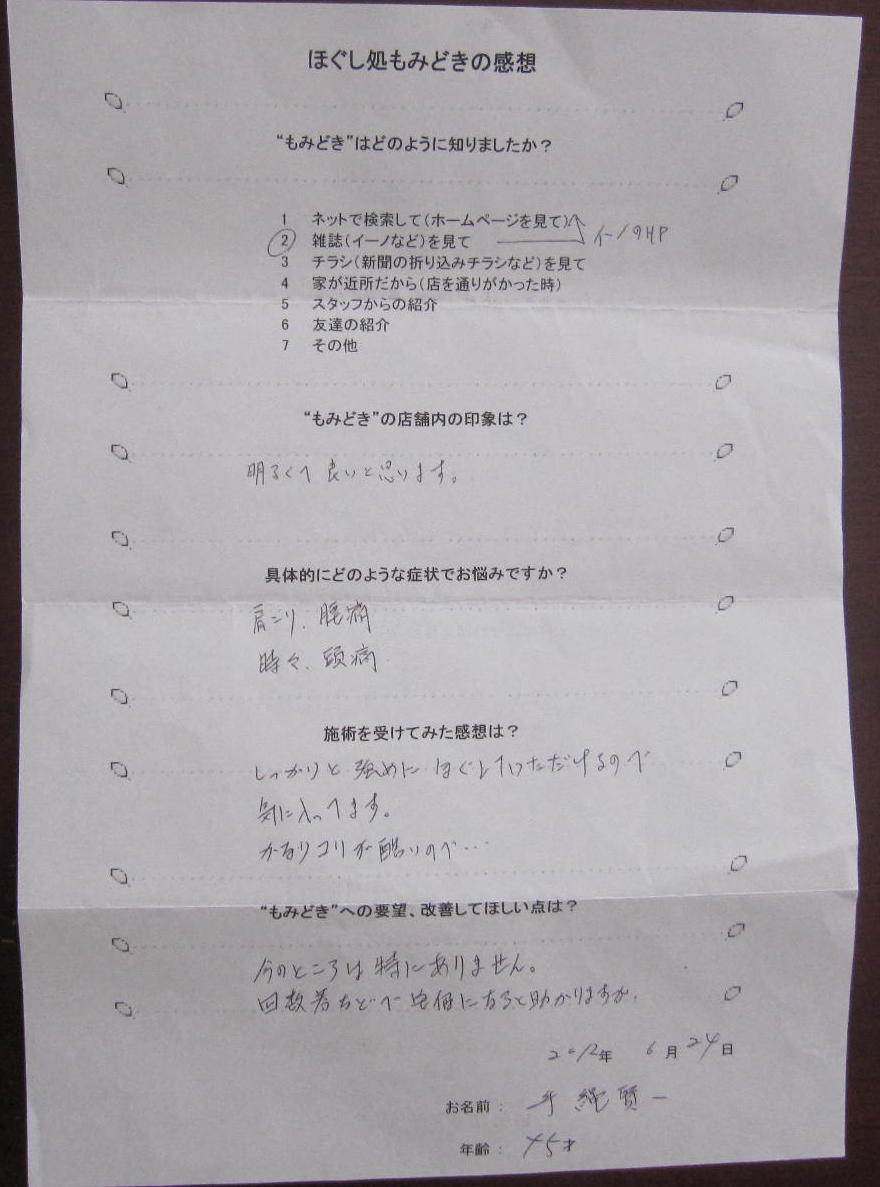 ほぐし処もみどきの感想
“もみどき”はどのように知りましたか？
1 ネットで検索して（ホームページを見て）
2 雑誌（イーノなど）を見て イーノのHP
3 チラシ（新聞の折り込みチラシなど）を見て
4 家が近所だから（店を通りがかった時）
5 スタッフからの紹介
6 友達の紹介
7 その他
“もみどき”の店舗内の印象は？
明るくて良いと思います。
具体的にどのような症状でお悩みですか？
肩こり、腰痛
時々、頭痛
施術を受けてみた感想は？
しっかりと強めにほぐしていただけるので
気に入ってます。
かなりコリが酷いので…
“もみどき”への要望、改善してほしい点は？
今のところは特にありません。
回数券などで安価になると助かりますが。
2012年 6月24日
お名前： 賢一
年齢： 45才